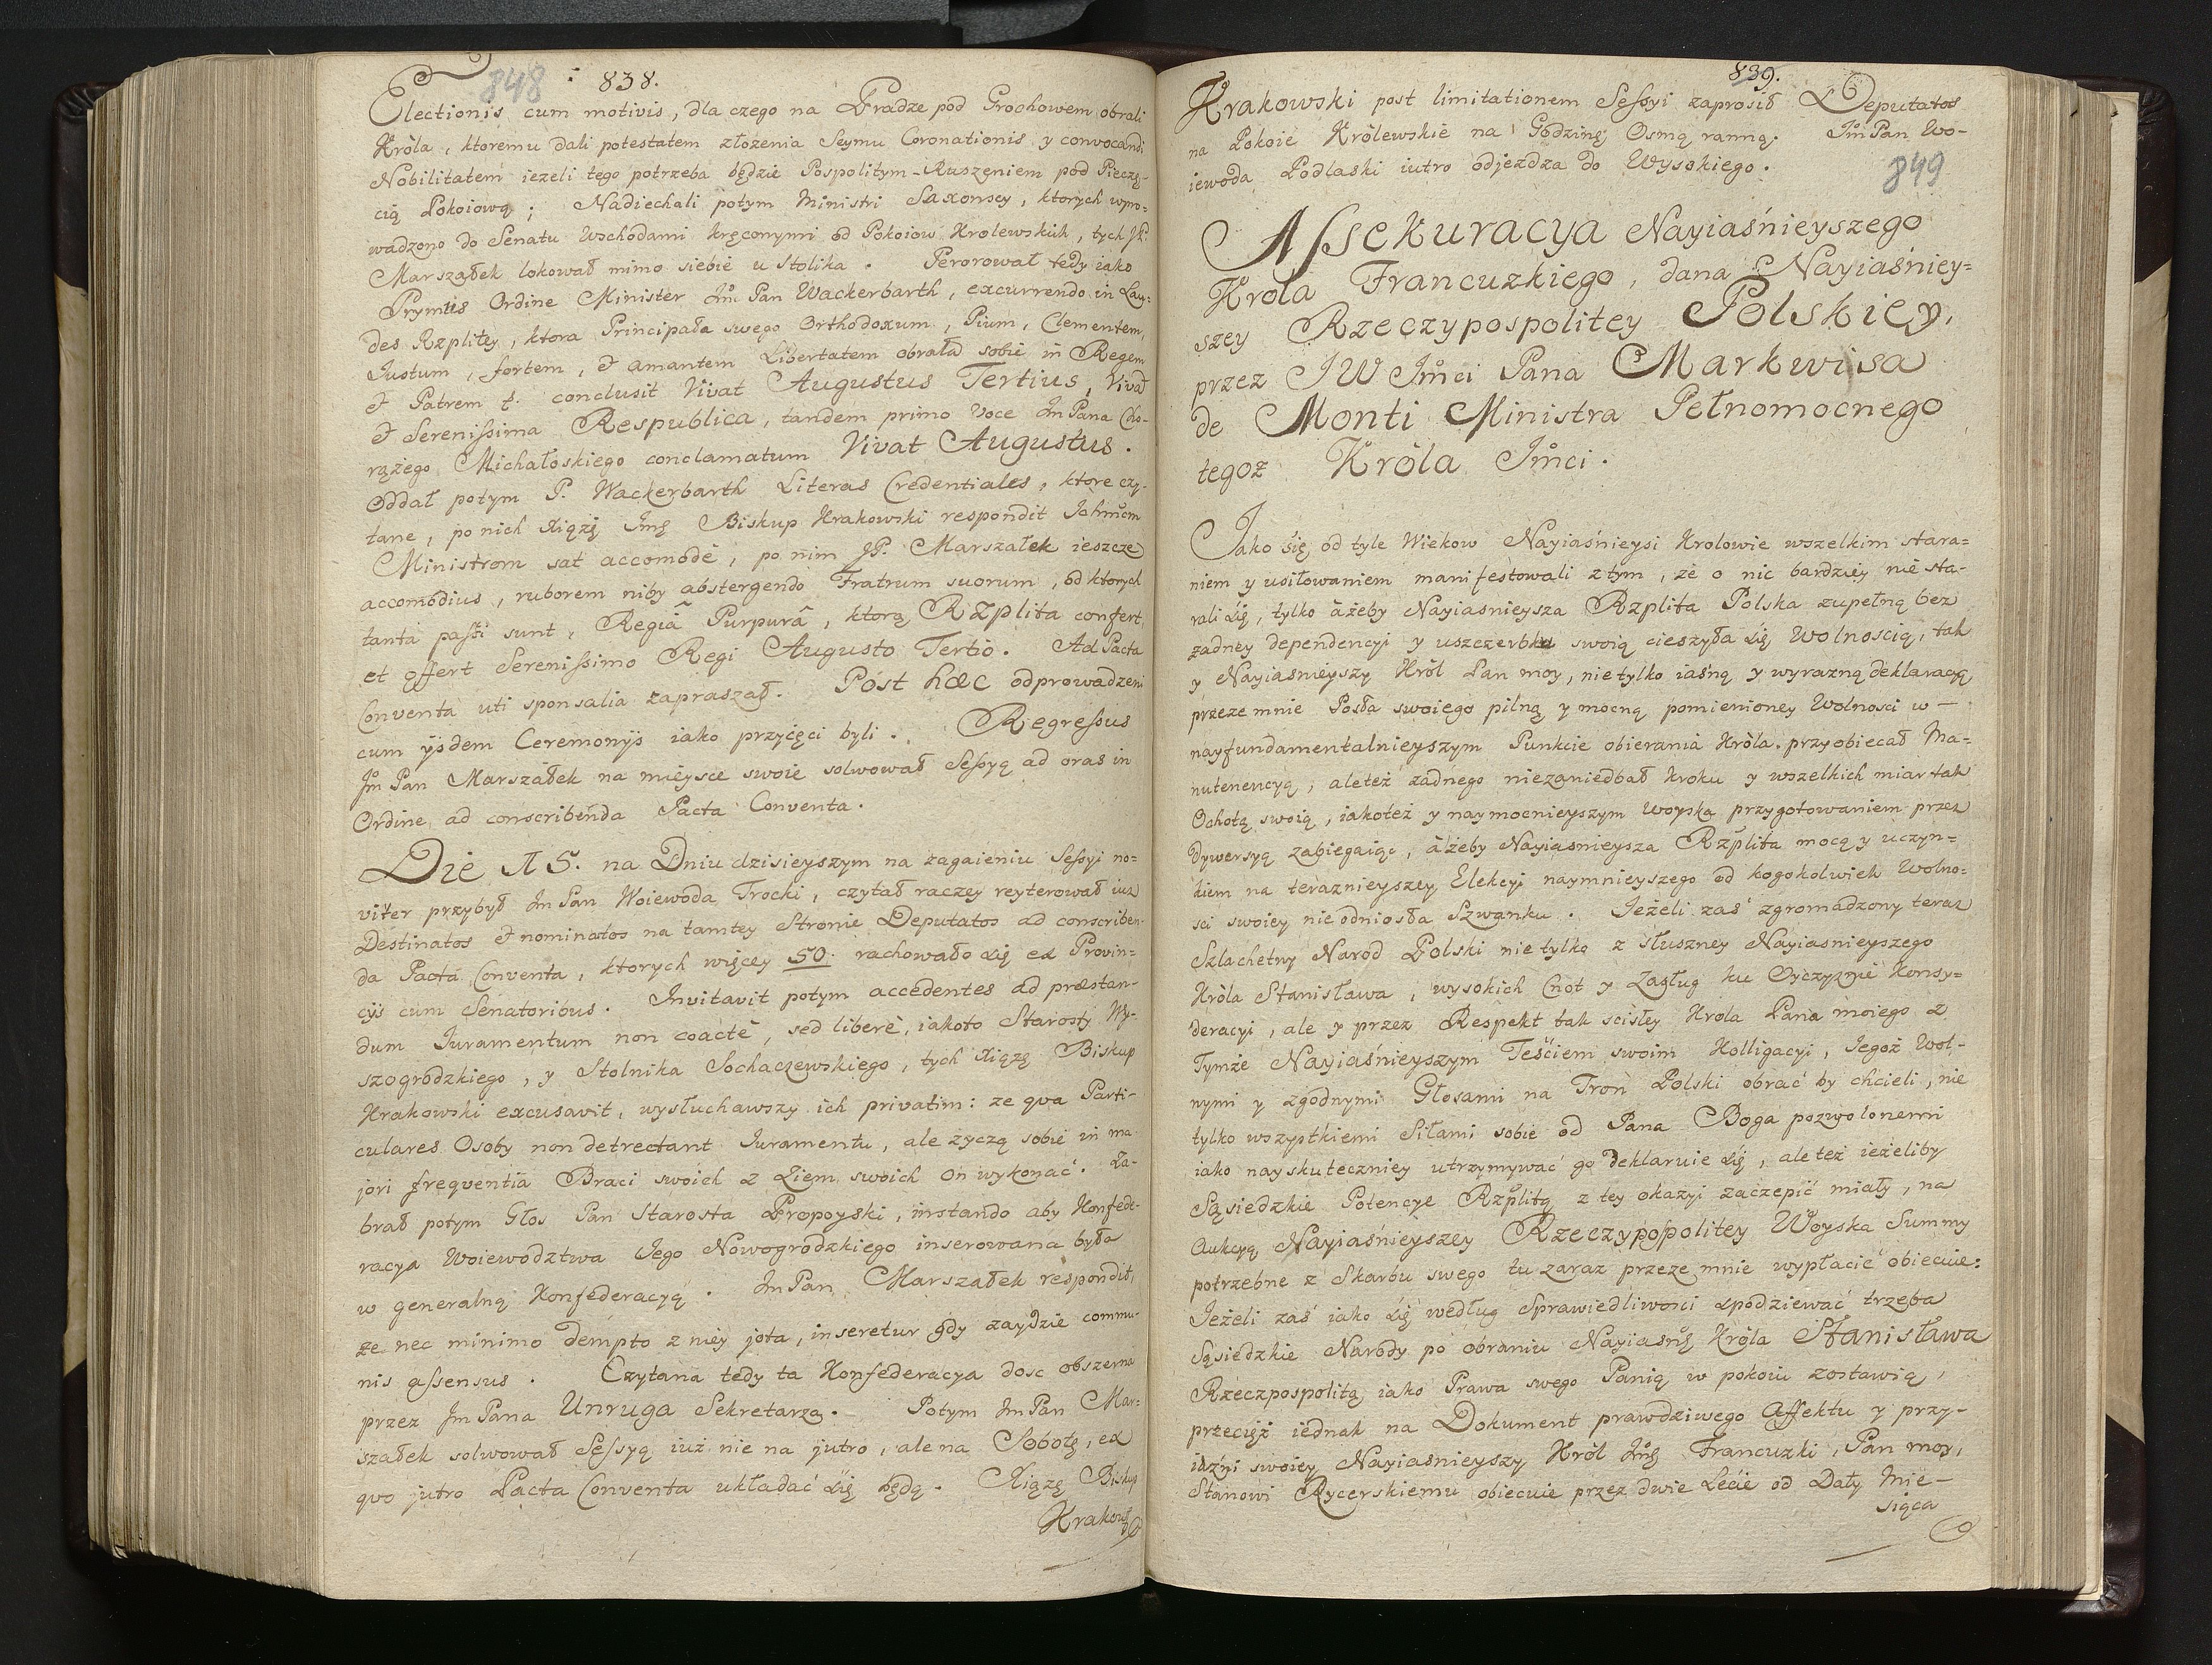 848 838.
Electionis cum motivis, dla czego na Pradze pod Grochowem obrali
Króla, ktoremu dali potestatem złozenia Seymu Coronationis y convocandi
Nobilitatem iezeli tego potrzeba będzie Pospolitym-Ruszeniem pod Pieczę-
cią Pokoiową; Nadiechali potym Ministri Saxonscy, ktorych wpro-
wadzono do Senatu Wschodami kręconymi od Pokoiow Krolewskich, tych JP.
Marszałek lokował mimo siebie u Stolika. Perorował tedy iako
Prymus Ordine Minister Jm̃ Pan Wackerbarth, excurrendo in Lau-
des Rzplitey, ktora Principała swego Orthodoxum, Pium, Clementem,
Justum, fortem, & amantem Libertatem obrała sobie in Regem
& Patrem &. conclusit Vivat Augustus Tertius, Vivat
& Serenissima Respublica, tandem primo Voce Jm Pana Cho-
rążego Michałoskiego conclamatum Vivat Augustus.
Oddał potym P. Wackerbarth Literas Credentiales, ktore czy-
tane, po nich Xiążę Jmę Biskup Krakowski respondit
Ministrom sat accomodè, po nim JP. Marszałek ieszcze
accomodius, ruborem niby abstergendo Fratrum suorum, od ktorych
tanta passi sunt, Regiâ Purpurâ, ktorą Rzplita confert
et offert Serenissimo Regi Augusto Tertio. Ad Pacta
Conventa uti sponsalia zapraszał. Post hæc odprowadzeni
cum ijsdem Ceremonijs iako przyięci byli. Regressus
Jm̃ Pan Marszałek na mieysce swoie solwował Sessyą ad cras in
Ordine ad conscribenda Pacta Conventa.
Die 15. na Dniu dzisieyszym na zagaieniu Sessyi no-
viter przybył Jm Pan Woiewoda Trocki, czytał raczey reyterował iuz
Destinatos & nominatos na tamtey Stronie Deputatos ad conscriben-
da Pacta Conventa, ktorych więcey 50. rachowało się ex Provin-
cijs cum Senatoribus. Invitavit potym accedentes ad præstan-
dum Juramentum non coactè, sed liberè, iakoto Starosty Wy-
szogrodzkiego, y Stolnika Sochaczewskiego, tych Xiążę Biskup
Krakowski excusavit, wysłuchawszy ich privatim: ze qva Parti-
culares Osoby non detrectant Juramentu, ale zyczą sobie in ma-
jori freqventia Braci swoich z Ziem swoich on wykonać. Za-
brał potym Głos Pan Starosta Propoyski, instando aby Konfede-
racya Woiewodztwa Jego Nowogrodzkiego inserowana była
w generalną Konfederacyą. Jm Pan Marszałek respondit,
ze nec minimo dempto z niey jota, inseretur gdy zaydzie commu-
nis assensus. Czytana tedy ta Konfederacya dosc obszerna
przez Jm Pana Unruga Sekretarza. Potym Jm Pan Mar-
szałek solwował Sessyą iuż nie na jutro, ale na Sobotę, ex
qvo jutro Pacta Conventa układać się będą. Xiążę Biskup
Krakow-
839.
Krakowski post limitationem Sessyi zaprosił Deputatos
na Pokoie Królewskie na Godzinę Osmą ranną. Jm̃ Pan Wo-
iewoda Podlaski iutro odjezdza do Wysokiego.
849
Assekuracya Nayiaśnieyszego
Krola Francuzkiego, dana Nayiaśniey-
szey Rzeczypospolitey Polskiey,
przez JW Jm̃ci Pana Markwisa
de Monti Ministra Pełnomocnego
tegoz Króla Jm̃ci.
Jako się od tyle Wiekow Nayiaśnieysi Krolowie wszelkim stara-
niem y usiłowaniem manifestowali z tym, że o nic bardziey nie sta-
rali się, tylko ażeby Nayiasnieysza Rzplita Polska zupełną bez
zadney dependencyi y uszczerbku swoią cieszyła się Wolnoscią, tak
y Nayiasnieyszy Król Pan moy, nietylko iaśną y wyrazną deklaracyą
przeze mnie Posła swoiego pilną y mocną pomienioney Wolnosci w
nayfundamentalnieyszym Punkcie obierania Króla przyobiecał Ma-
nutenencyą, aleteż żadnego niezaniedbał kroku y wszelkich miar tak
Ochotą swoią, iakoteż y naymocnieyszym Woyska przygotowaniem przez
dywersyą zabiegaiąc, ażeby Nayiasnieysza Rzplita mocą y uczyn-
kiem na teraznieyszey Elekcyi naymnieyszego od kogokolwiek Wolno-
sci swoiey nie odniosła Szwanku. Jeżeli zaś zgromadzony teraz
Szlachetny Narod Polski nie tylko z słuszney Nayiasnieyszego
Króla Stanisława, wysokich Cnot y Zasług ku Oyczyznie Konsy-
deracyi, ale y przez Respekt tak scisłey Krola Pana moiego z
Tymże Nayiaśnieyszym Teściem swoim Kolligacyi, Jegoż Wol-
nymi y zgodnymi Głosami na Tron Polski obrać by chcieli, nie
tylko wszystkiemi Siłami sobie od Pana Boga pozwolonemi
iako nayskuteczniey utrzymywać go deklaruie się, ale też ieżeliby
Sąsiedzkie Potencye Rzplitą z tey okazyi zaczepić miały, na
Aukcyą Nayiaśnieyszey Rzeczypospolitey Woyska Summy
potrzebne z Skarbu swego tu zaraz przeze mnie wypłacić obiecuie:
Jeżeli zaś iako się według Sprawiedliwosci spodziewać trzeba
Sąsiedzkie Narody po obraniu Nayiasnę Króla Stanisława
Rzeczpospolitą iako Prawa swego Panią w pokoiu zostawią,
przecięż iednak na Dokument prawdziwego Affektu y przy-
iaźni swoiey Nayiasnieyszy Król Jmę Francuzki, Pan moy,
Stanowi Rycerskiemu obiecuie przez dwie Lecie od Daty Mie-
siąca